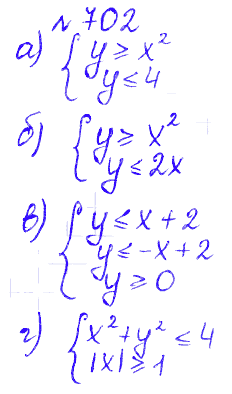 № 702
а) { y ≥ x²
y ≤ 4
б) { y ≥ x²
y ≤ 2x
в) { y ≤ x + 2
y ≤ -x + 2
y ≥ 0
г) { x² + y² ≤ 4
|x| ≥ 1